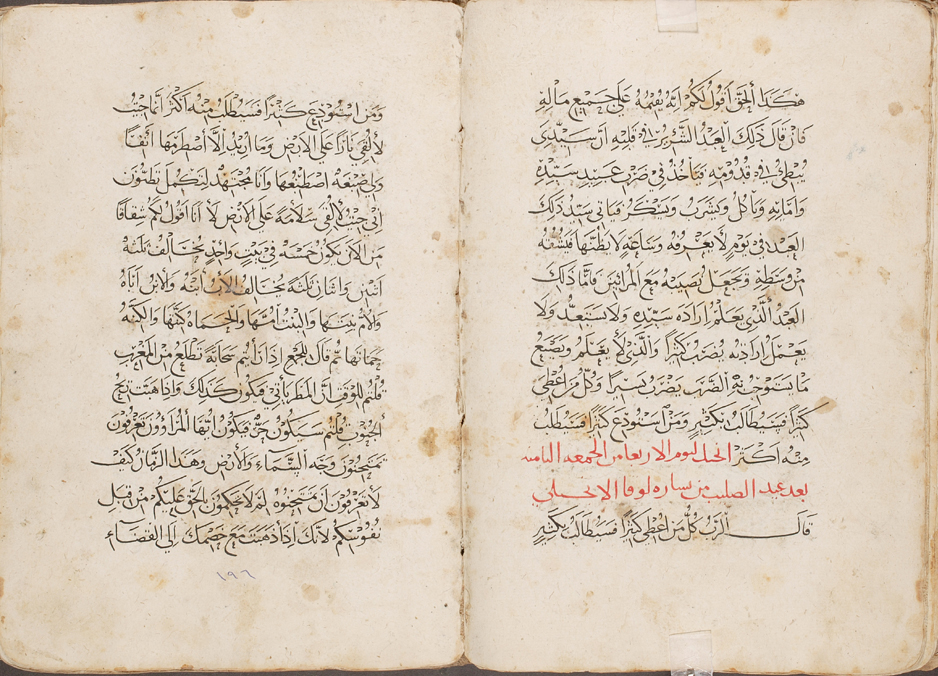 هكذا الحق اقول لكم انه يقيمه على جميع ماله
فان قال ذلك العبد الشرير في قلبه ان سيدي
يبطئ في قدومه فياخذ في ضرب عبيد سيده
واماته وياكل ويشرب ويسكر فياتي سيد ذلك
العبد في يوم لا يعرفه وساعة لا يظنها فيشقه
من وسطه ويجعل نصيبه مع المرائين فاما ذلك
العبد الذي يعلم ارادة سيده ولا يستعد ولا
يعمل ارادته يضرب كثيرا والذي لا يعلم ويصنع
ما يستوجب به الضرب يضرب يسيرا وكل من اعطي
كثيرا فسيطالب بكثير ومن استودع كثيرا فسيطلب
منه اكثر انجيل اليوم الاربعا من الجمعه الثامنه
بعد عيد الصليب من بشاره لوقا الانجيلي
قال الرب كل من اعطي كثيرا فسيطالب بكثير
ومن استودع كثيرا فسيطلب منه اكثر انما جيت
لالقي نارا على الارض وما اريد الا اضطرمها انفا
ولي صبغة اصطبغها وانا مجتهد لتكمل تظنون
اني جيت لالقي سلامة على الارض لا انا اقول لكم شقاقا
من الان يكون خمسه في بيت واحد يخالف ثلثة
اثنين واثنان ثلثة يخالف الاب ابنه والابن اباه
والام بنتها والبنت امها والحماه كنتها والكنه
حماتها ثم قال للجمع اذا رايتم سحابة تطلع من المغرب
قلتم للوقت ان المطر ياتي فيكون كذلك واذا هبت ريح
الجنوب قلتم سيكون حر فيكون ايها المراؤون تعرفون
تمتحنون وجه السماء والارض وهذا الزمان كيف
لا تعرفون ان تمتحنوه لم لا تحكمون بالحق عليكم من قبل
نفوسكم لانك اذا ذهبت مع خصمك الى القضاء
١٩٦